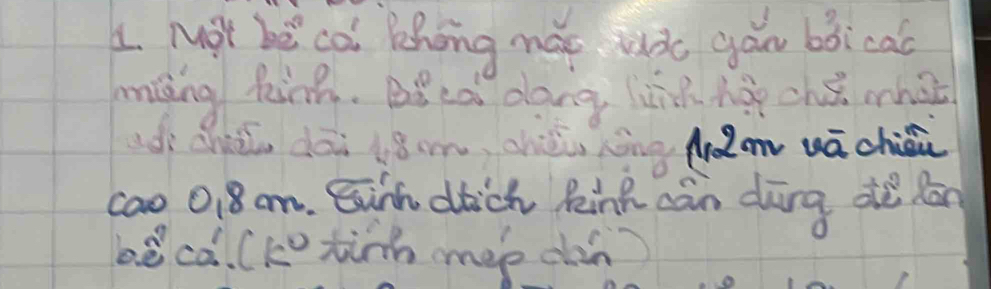 1. Một bể cá không nắp được gắn bởi các
miếng kính. Bể cá dạng hình hộp chữ nhật
với chiều dài 1,8 m, chiều rộng 1,2m và chiều
cao 0,8 m. Tính dtích kính cần dùng để làm
bể cá. (k° tính mép dán)